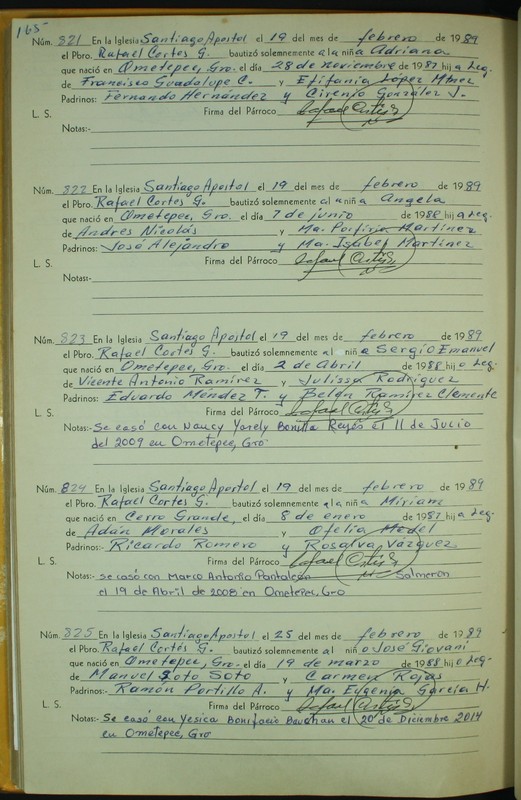 165-
Núm. 821 En la Iglesia Santiago Apostol el 19 del mes de febrero de 1989
el Pbro. Rafael Cortes G. bautizó solemnemente a la niña Adriana
que nació en Ometepec, Gro. el día 28 de noviembre de 1987 hija Leg.
de Francisco Guadalupe C. y Epifania López Mtnez
Padrinos: Fernando Hernández y Cirenio González J.
L. S. Firma del Párroco
Notas:-
Núm. 822 En la Iglesia Santiago Apostol el 19 del mes de febrero de 1989
el Pbro. Rafael Cortes G. bautizó solemnemente al a niña Angela
que nació en Ometepec, Gro. el día 7 de junio de 1988 hija Leg.
de Andres Nicolás y Ma. Porfiria Martínez
Padrinos: José Alejandro y Ma. Isabel Martínez
L. S. Firma del Párroco
Notas:-
Núm. 823 En la Iglesia Santiago Apostol el 19 del mes de febrero de 1989
el Pbro. Rafael Cortés G. bautizó solemnemente al niño Sergio Emanuel
que nació en Ometepec, Gro. el día 2 de Abril de 1988 hijo Leg.
de Vicente Antonio Ramírez y Julissa Rodríguez
Padrinos: Eduardo Méndez T. y Belén Ramírez Clemente
L. S. Firma del Párroco
Notas:- Se casó con Nancy Yarely Bonilla Reyes el 11 de Julio
del 2009 en Ometepec, Gro.
Núm. 824 En la Iglesia Santiago Apostol el 19 del mes de febrero de 1989
el Pbro. Rafael Cortés G. bautizó solemnemente a la niña Miriam
que nació en Cerro Grande, el día 8 de enero de 1987 hija Leg.
de Adán Morales y Ofelia Medel
Padrinos:- Ricardo Romero y Rosalva Vázquez
L. S. Firma del Párroco
Notas:- Se casó con Marco Antonio Pantaleón Salmerón
el 19 de Abril de 2008 en Ometepec, Gro
Núm. 825 En la Iglesia Santiago Apostol el 25 del mes de febrero de 1989
el Pbro. Rafael Cortés G. bautizó solemnemente al niño José Giovani
que nació en Ometepec, Gro. el día 19 de marzo de 1988 hijo Leg.
de Manuel Soto Soto y Carmen Rojas
Padrinos: Ramón Portillo A. y Ma. Eugenia García H.
L. S. Firma del Párroco
Notas:- Se casó con Yesica Bonifacio el 20 de Diciembre 2014
en Ometepec, Gro